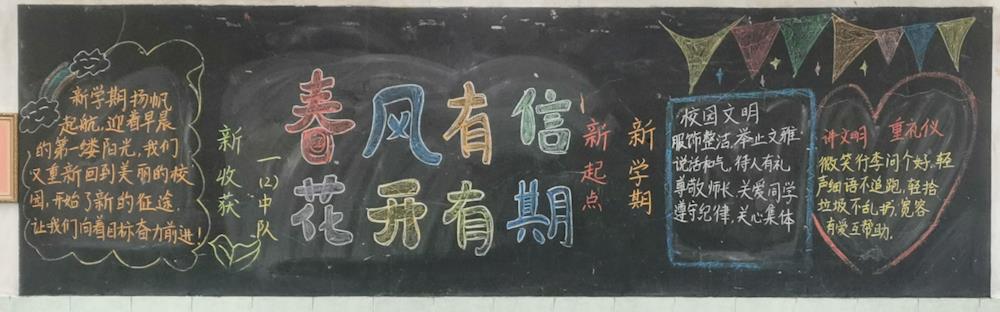 新学期扬帆
起航,迎着早晨
的第一缕阳光,我们
又重新回到美丽的校
园,开始了新的征途.
让我们向着目标奋力前进!
新收获
一(2)中队
春风有信
花开有期
新起点
新学期
校园文明
服饰整洁.举止文雅.
说话和气,待人有礼
尊敬师长,关爱同学
遵守纪律,关心集体
讲文明 重礼仪
微笑行李问个好,轻
声细语不追跑,轻拾
垃圾不乱扔,宽容
有爱互帮助.